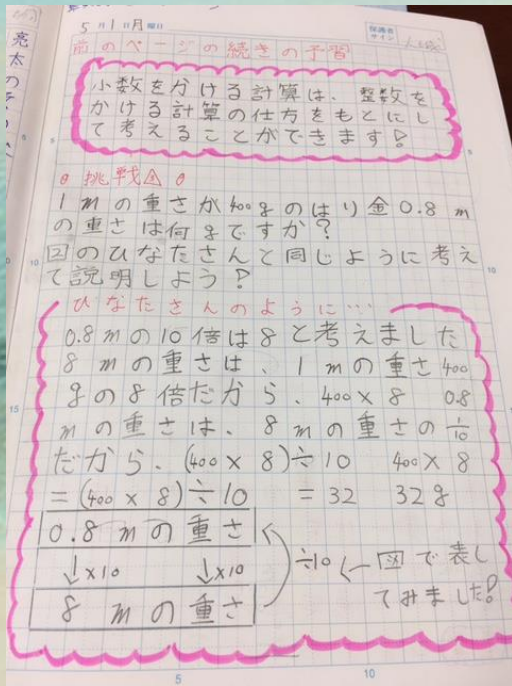 5月1日月曜日
保護者
サイン
前のページの続きの予習
小数をかける計算は、整数を
かける計算の仕方をもとにし
て考えることができます!
挑戦④
1mの重さが400gのはり金0.8m
の重さは何gですか?
回のひなたさんと同じように考え
て説明しよう?
ひなたさんのように…
0.8mの10倍は8と考えました
8mの重さは、1mの重さ400
gの8倍だから、400×8 0.8
mの重さは、8mの重さの1/10
だから、(400×8)÷10 400×8
=(400×8)÷10 =32 32g
0.8mの重さ
↓×10 ↓×10
8mの重さ
÷10 ←図で表し
てみました!
5
10
15
5
10
10
亮太の